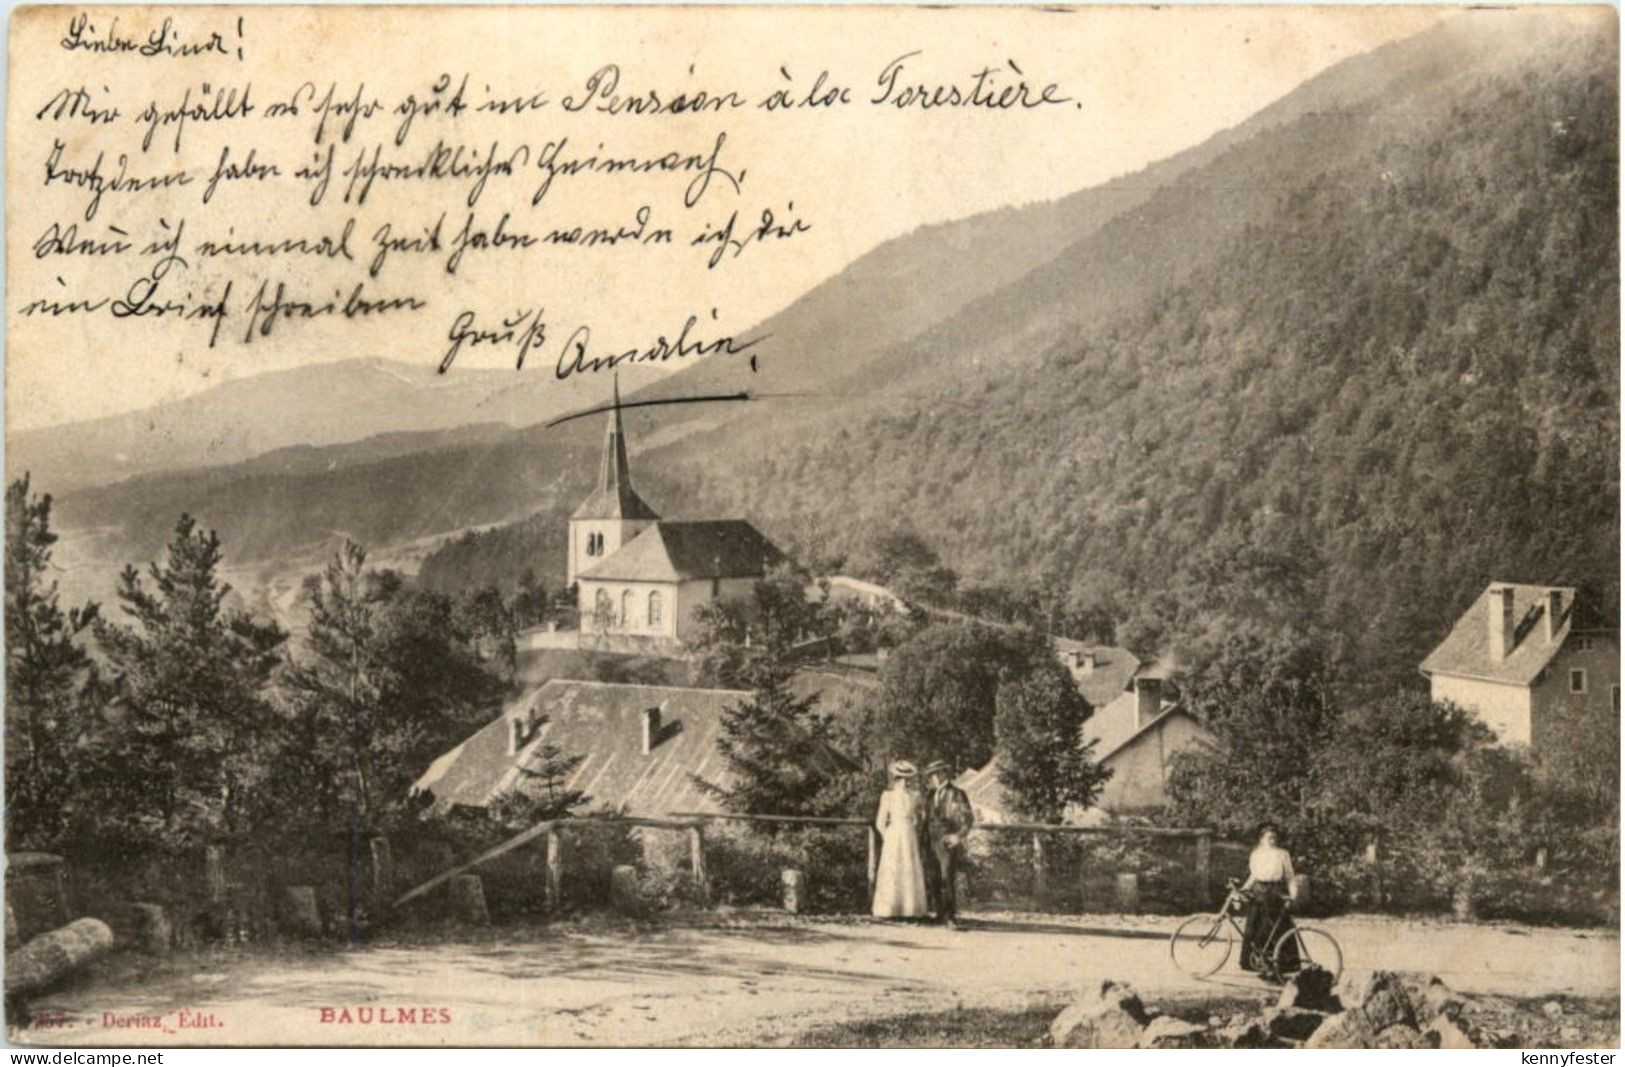 Liebe Lina!
Mir gefällt es sehr gut im Pension à la Forestière.
Trotzdem habe ich schreckliches Heimweh,
Wen̄ ich einmal Zeit habe werde ich dir
ein Brief schreiben
Gruß Amalie.
257. - Deriaz, Edit. BAULMES
www.delcampe.net kennyfester